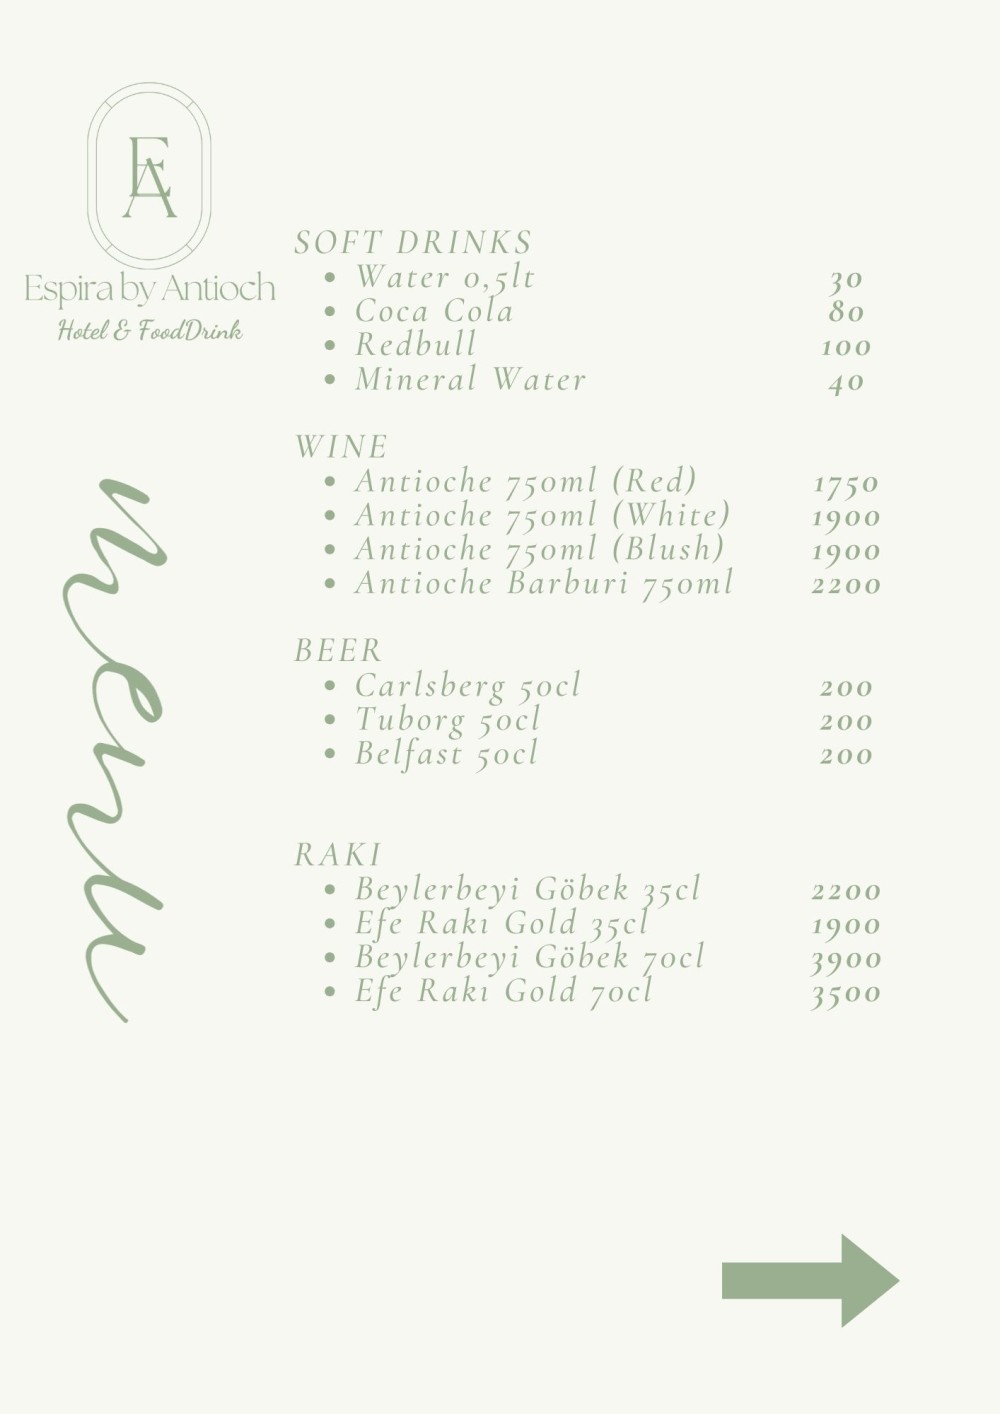 EA
Espira by Antioch
Hotel & FoodDrink
menu
SOFT DRINKS
• Water 0,5lt 30
• Coca Cola 80
• Redbull 100
• Mineral Water 40
WINE
• Antioche 750ml (Red) 1750
• Antioche 750ml (White) 1900
• Antioche 750ml (Blush) 1900
• Antioche Barburi 750ml 2200
BEER
• Carlsberg 50cl 200
• Tuborg 50cl 200
• Belfast 50cl 200
RAKI
• Beylerbeyi Göbek 35cl 2200
• Efe Rakı Gold 35cl 1900
• Beylerbeyi Göbek 70cl 3900
• Efe Rakı Gold 70cl 3500